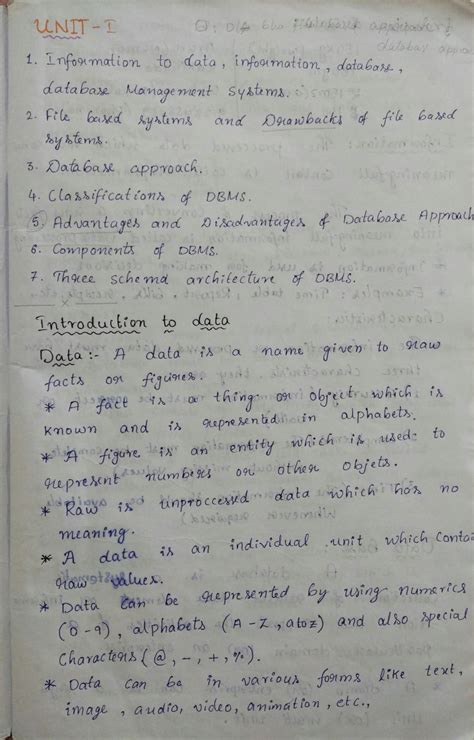 UNIT-I
1. Information to data, information, database,
database Management Systems.
2. File based systems and Drawbacks of file based
systems.
3. Database approach.
4. Classifications of DBMS.
5. Advantages and Disadvantages of Database Approach
6. Components of DBMS.
7. Three schema architecture of DBMS.
Introduction to data
Data:- A data is a name given to raw
facts or figures.
* A fact is a thing or object which is
known and is represented in alphabets.
* A figure is an entity which is used to
represent numbers or other objets.
* Raw is unproccesed data which has no
meaning.
* A data is an individual unit which contai
raw values.
* Data can be represented by using numerics
(0-9), alphabets (A-Z, atoz) and also special
Characters (@, -, +, %).
* Data can be in various forms like text,
image, audio, video, animation, etc.,